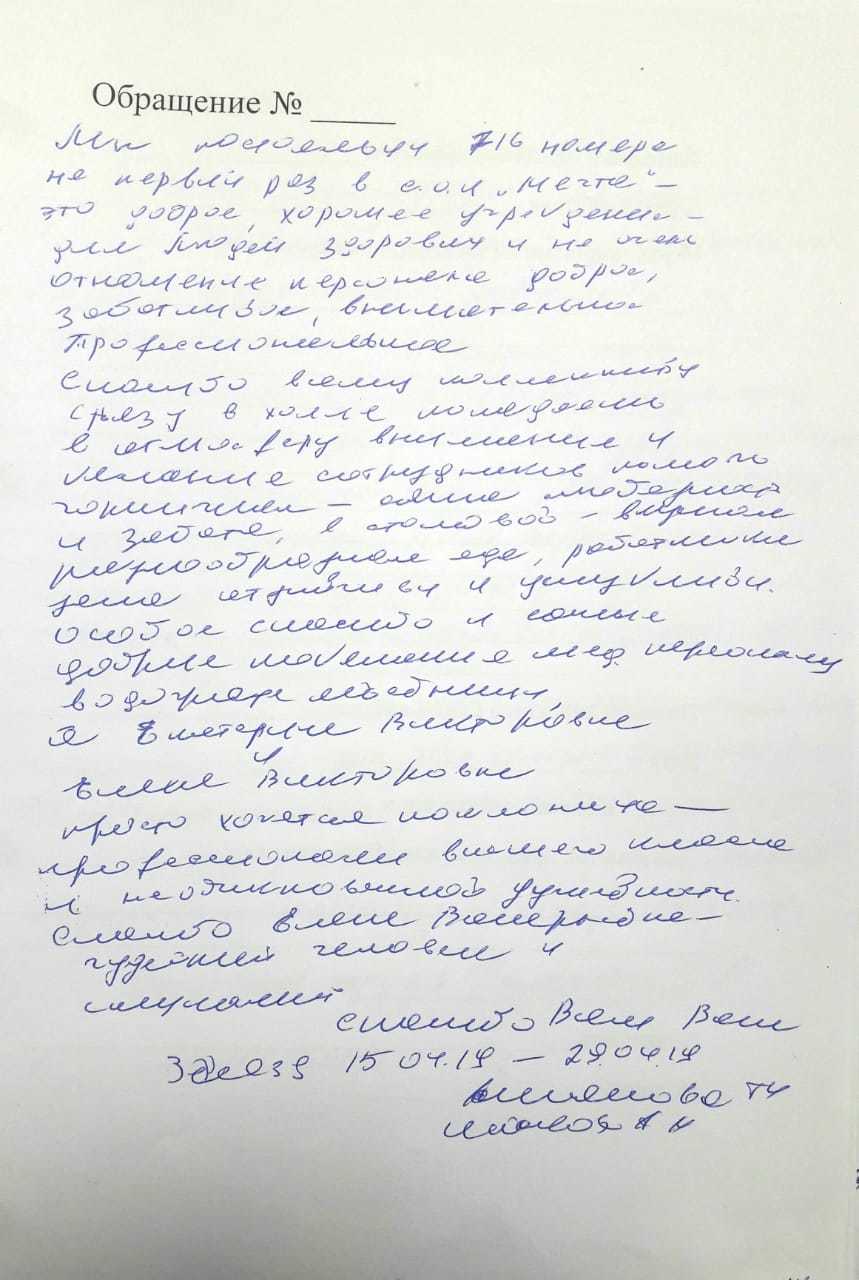 Обращение № _____
Мы постояльцы 716 номера
не первый раз в с.о.л „Мечта" –
это доброе, хорошее учреждение –
для людей здоровых и не очень
отношение персонала доброе,
заботливое, внимательное
профессиональное
Спасибо всему коллективу
сразу в холле попадаешь
в атмосферу внимания и
желание сотрудников помочь
горничная – сама
и забота, в столовой – вкусная
разнообразная еда, работники
зала отзывчивы и услужливы.
Особое спасибо и самые
добрые пожелания мед. персоналу
водогрязелечебницы
а Екатерине Викторовне
и
Елене Викторовне
просто хочется поклониться —
профессионалы высшего класса
и необыкновенной душевности.
Спасибо Елене Валерьевне –
чудесный человек и
специалист
спасибо Вам Всем
Заезд 15 04.19 — 29.04.19